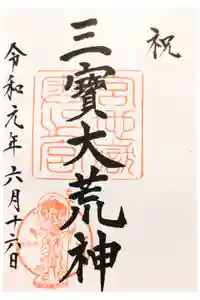 祝
三寳大荒神
令和元年六月十六日